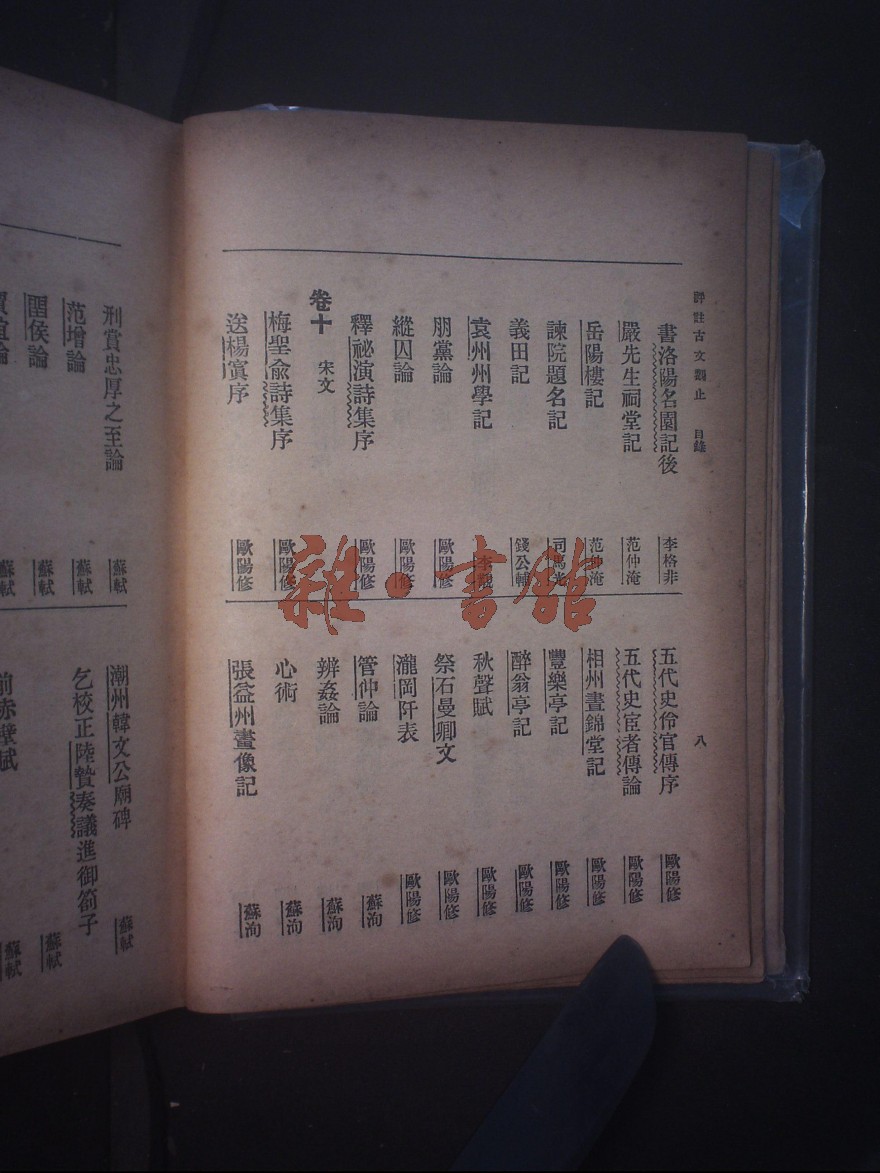 評註古文觀止 目錄 八
書洛陽名園記後 李格非
嚴先生祠堂記 范仲淹
岳陽樓記 范仲淹
諫院題名記 司馬光
義田記 錢公輔
袁州州學記 李覯
朋黨論 歐陽修
縱囚論 歐陽修
釋祕演詩集序 歐陽修
卷十 宋文
梅聖俞詩集序 歐陽修
送楊寘序 歐陽修
五代史伶官傳序 歐陽修
五代史宦者傳論 歐陽修
相州晝錦堂記 歐陽修
豐樂亭記 歐陽修
醉翁亭記 歐陽修
秋聲賦 歐陽修
祭石曼卿文 歐陽修
瀧岡阡表 歐陽修
管仲論 蘇洵
辨姦論 蘇洵
心術 蘇洵
張益州畫像記 蘇洵
刑賞忠厚之至論 蘇軾
范增論 蘇軾
留侯論 蘇軾
賈誼論 蘇軾
潮州韓文公廟碑 蘇軾
乞校正陸贄奏議進御箚子 蘇軾
前赤壁賦 蘇軾
雜·書館